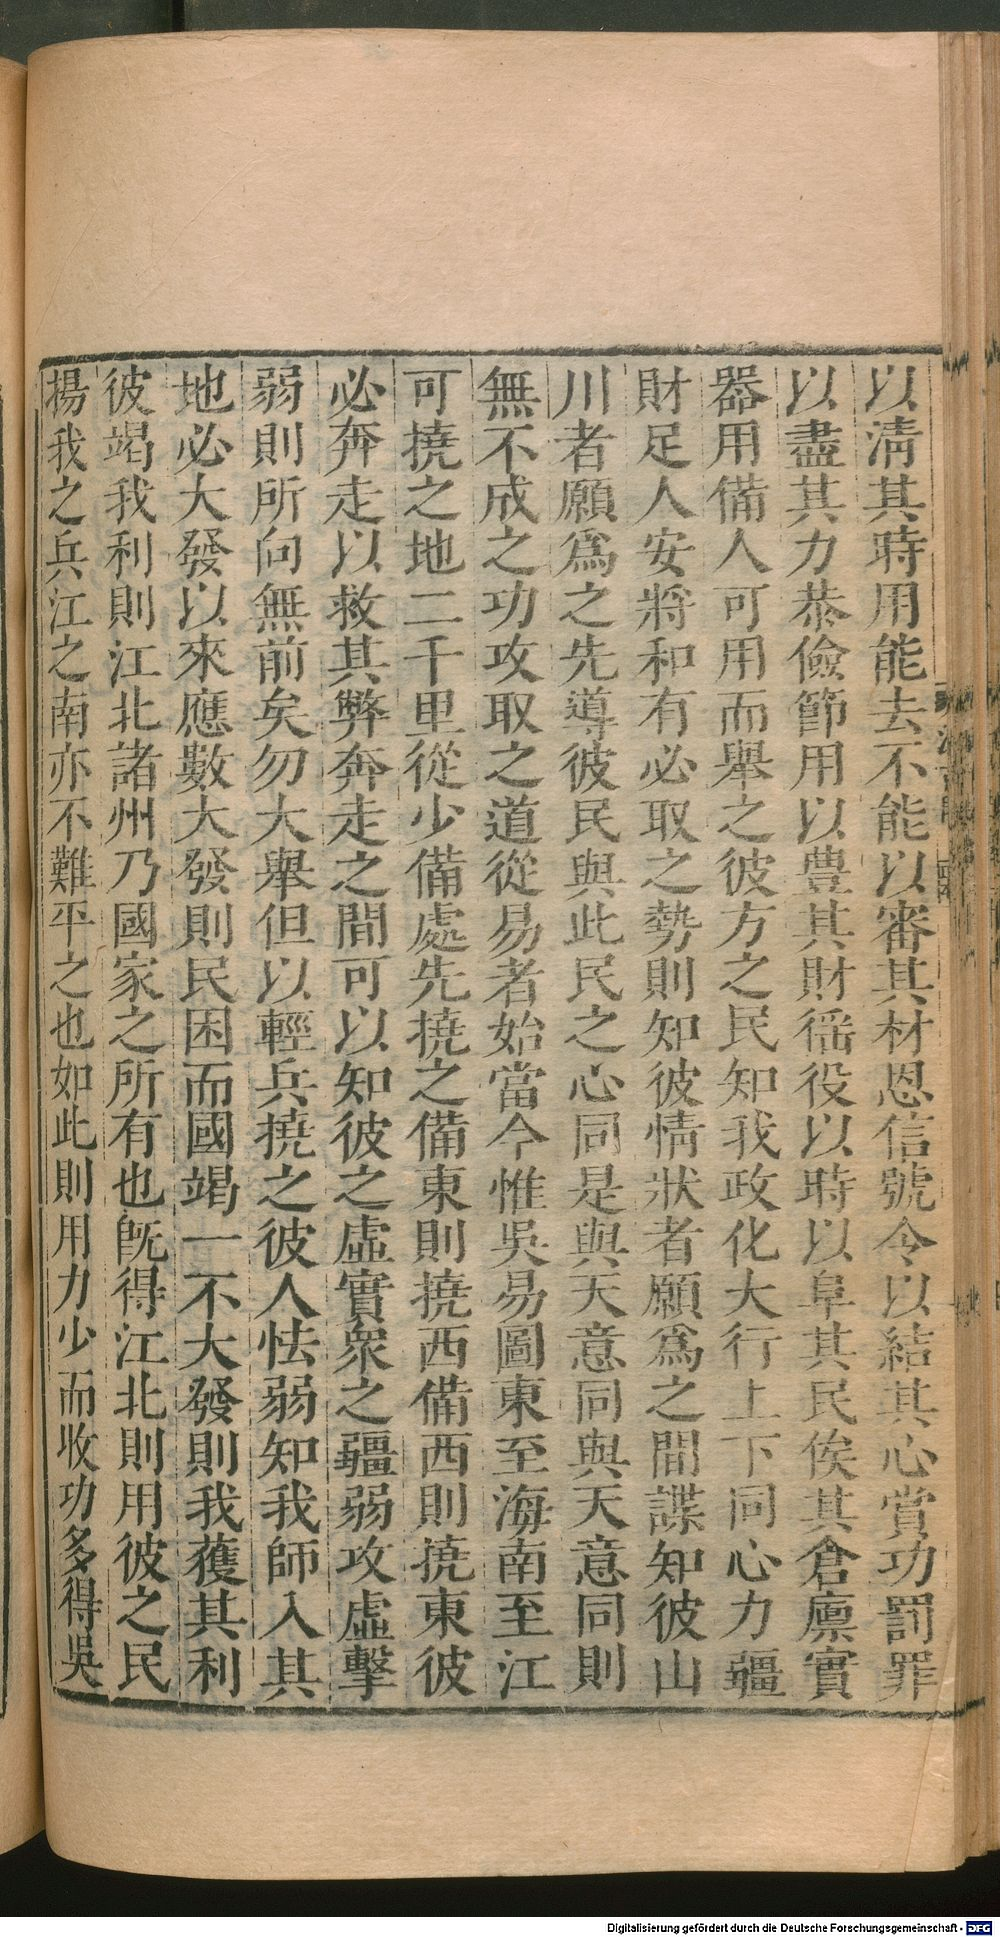 以清其時用能去不能以審其材恩信號令以結其心賞功罰罪
以盡其力恭儉節用以豊其財徭役以時以阜其民俟其倉廩實
器用備人可用而舉之彼方之民知我政化大行上下同心力疆
財足人安將和有必取之勢則知彼情狀者願爲之間諜知彼山
川者願爲之先導彼民與此民之心同是與天意同與天意同則
無不成之功攻取之道從易者始當今惟吳易圖東至海南至江
可撓之地二千里從少備處先撓之備東則撓西備西則撓東彼
必奔走以救其弊奔走之間可以知彼之虛實衆之疆弱攻虛擊
弱則所向無前矣勿大舉但以輕兵撓之彼人怯弱知我師入其
地必大發以來應數大發則民困而國竭一不大發則我獲其利
彼竭我利則江北諸州乃國家之所有也旣得江北則用彼之民
揚我之兵江之南亦不難平之也如此則用力少而收功多得吳
Digitalisierung gefördert durch die Deutsche Forschungsgemeinschaft - DFG